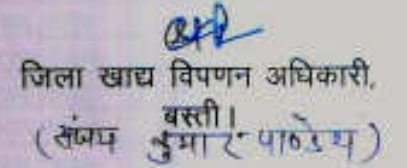 जिला खाद्य विपणन अधिकारी,
बस्ती।
(संजय कुमार पाण्डेय)